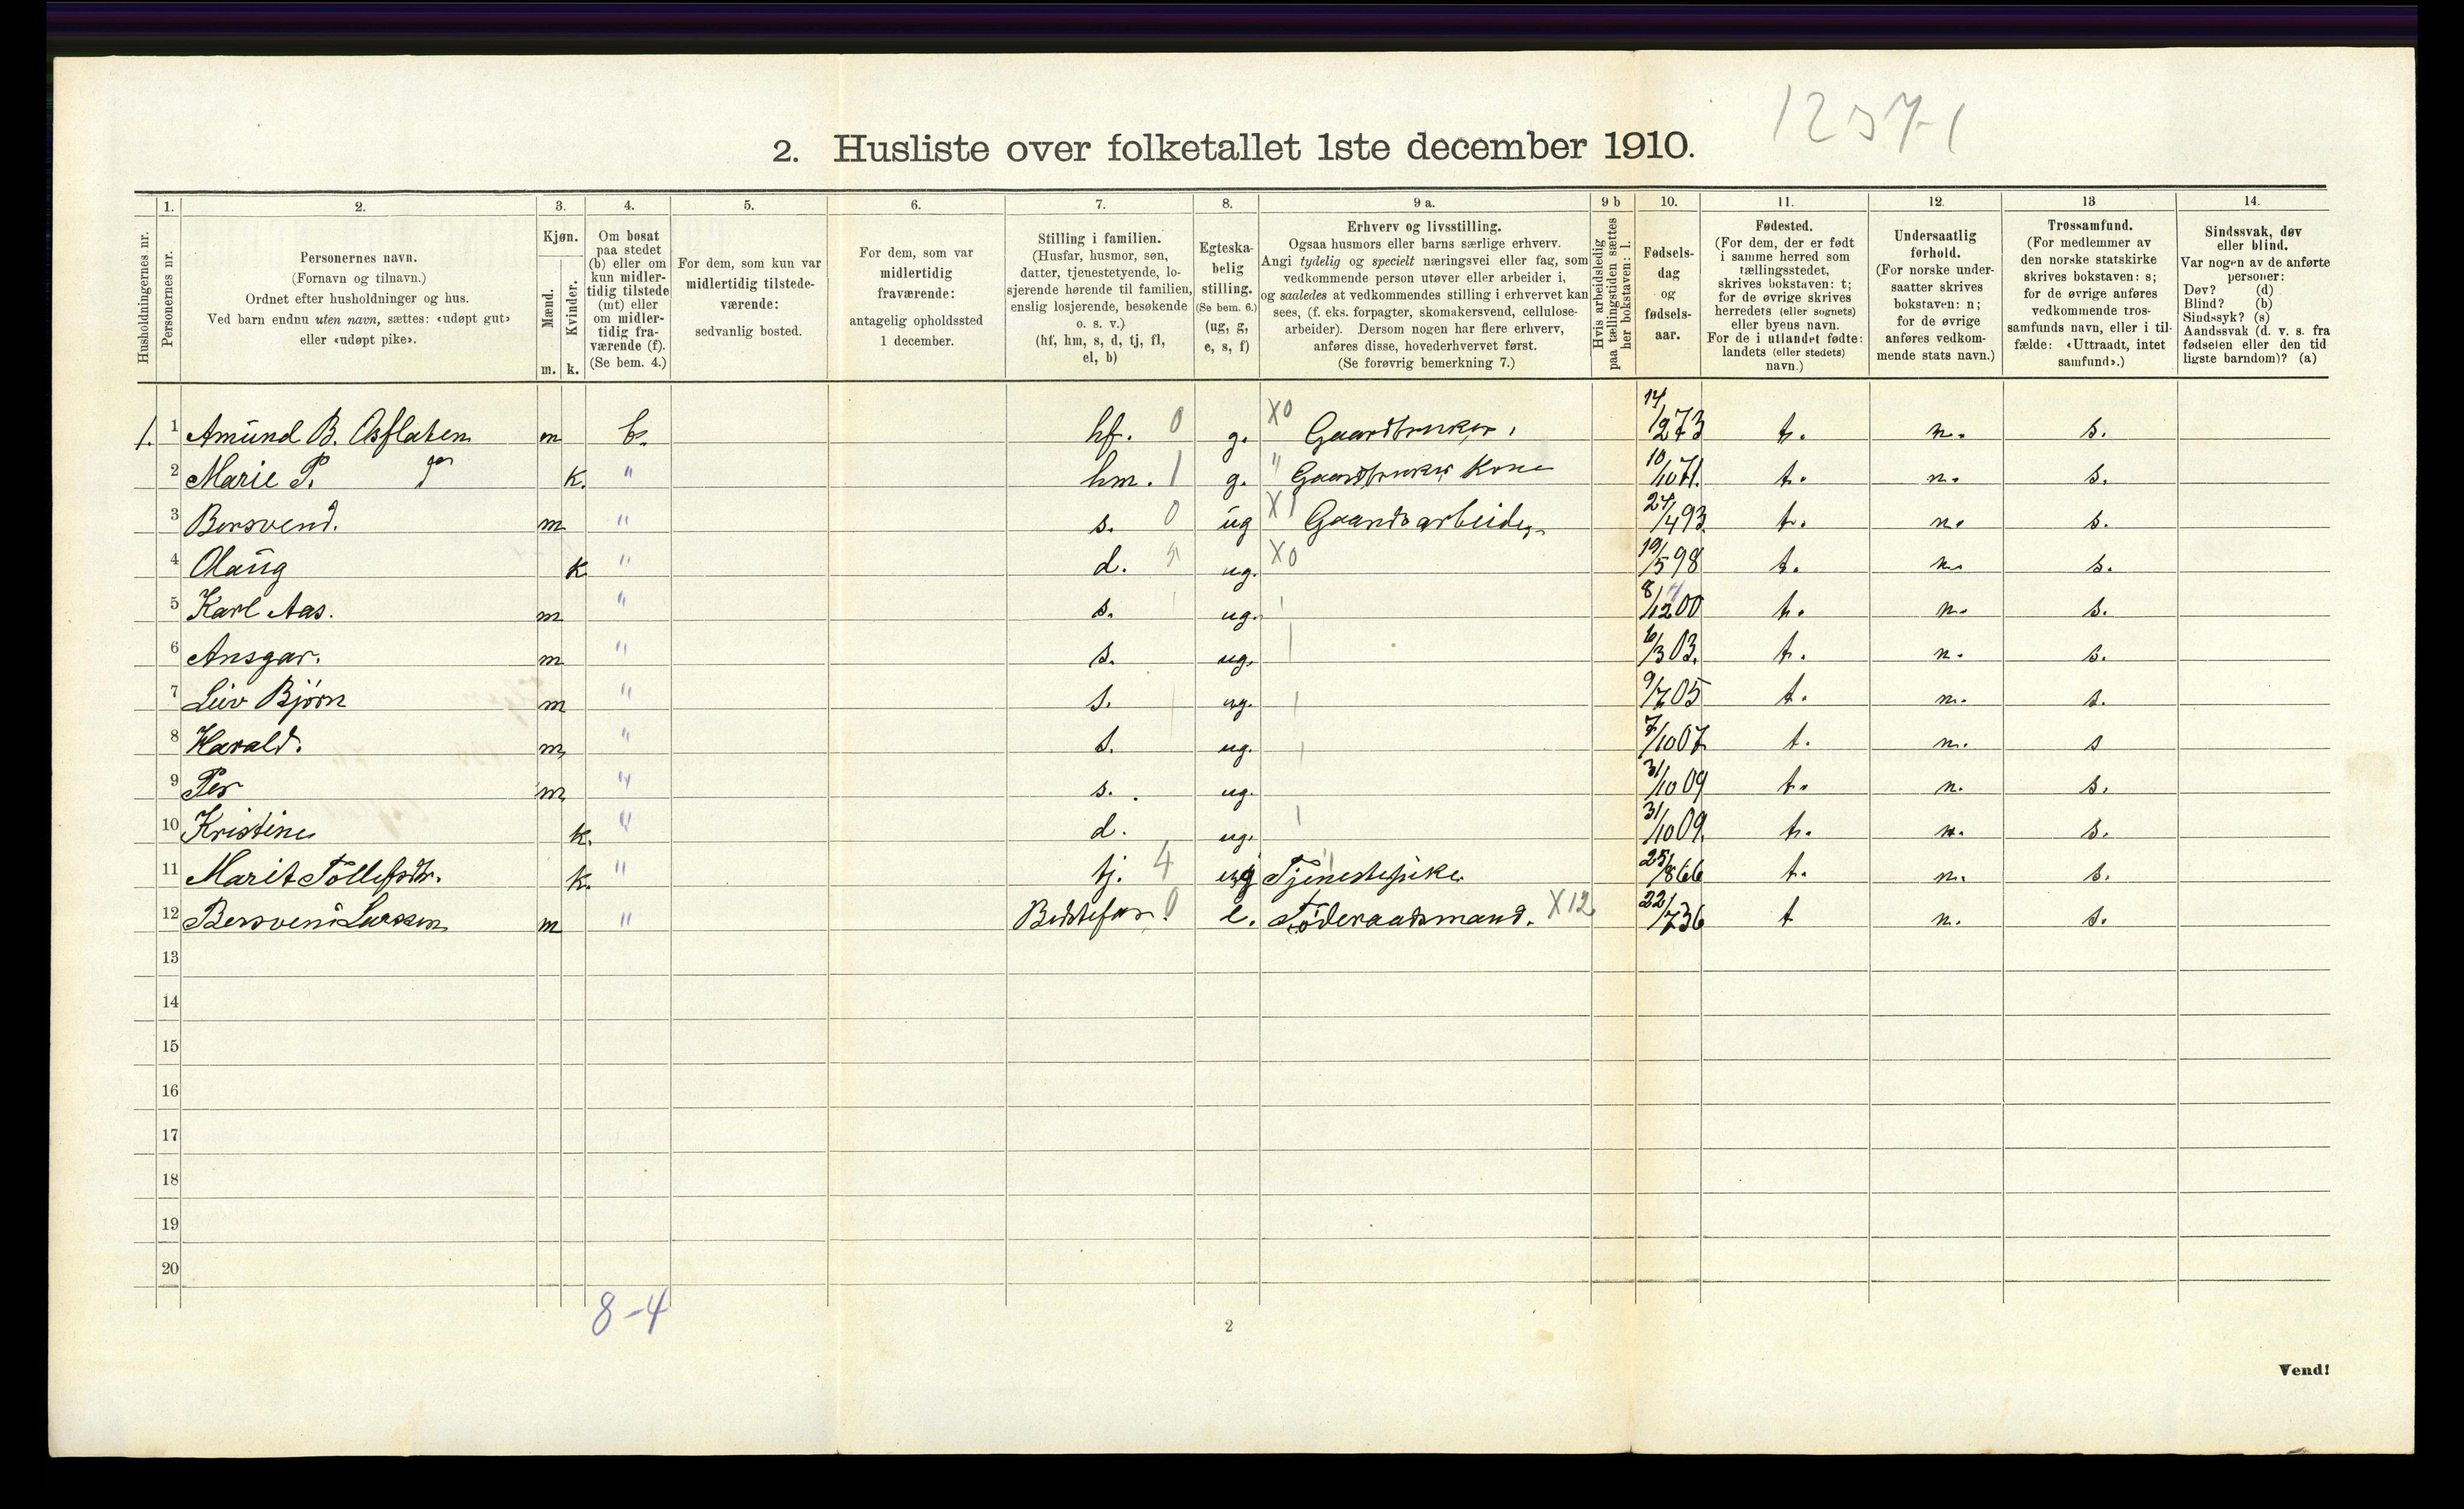 1257-1
2. Husliste over folketallet 1ste december 1910.
Husholdningernes nr.
1. Personernes nr.
2. Personernes navn.
(Fornavn og tilnavn.)
Ordnet efter husholdninger og hus.
Ved barn endnu uten navn, sættes: «udøpt gut»
eller «udøpt pike».
3. Kjøn.
Mænd. m.
Kvinder. k.
4. Om bosat
paa stedet
(b) eller om
kun midler-
tidig tilstede
(mt) eller
om midler-
tidig fra-
værende (f).
(Se bem. 4.)
5. For dem, som kun var
midlertidig tilstede-
værende:
sedvanlig bosted.
6. For dem, som var
midlertidig
fraværende:
antagelig opholdssted
1 december.
7. Stilling i familien.
(Husfar, husmor, søn,
datter, tjenestetyende, lo-
sjerende hørende til familien,
enslig losjerende, besøkende
o. s. v.)
(hf, hm, s, d, tj, fl,
el, b)
8. Egteska-
belig
stilling.
(Se bem. 6.)
(ug, g,
e, s, f)
9 a. Erhverv og livsstilling.
Ogsaa husmors eller barns særlige erhverv.
Angi tydelig og specielt næringsvei eller fag, som
vedkommende person utøver eller arbeider i,
og saaledes at vedkommendes stilling i erhvervet kan
sees, (f. eks. forpagter, skomakersvend, cellulose-
arbeider). Dersom nogen har flere erhverv,
anføres disse, hovederhvervet først.
(Se forøvrig bemerkning 7.)
9 b Hvis arbeidsledig
paa tællingstiden sættes
her bokstaven: l.
10. Fødsels-
dag
og
fødsels-
aar.
11. Fødested.
(For dem, der er født
i samme herred som
tællingsstedet,
skrives bokstaven: t;
for de øvrige skrives
herredets (eller sognets)
eller byens navn.
For de i utlandet fødte:
landets (eller stedets)
navn.)
12. Undersaatlig
forhold.
(For norske under-
saatter skrives
bokstaven: n;
for de øvrige
anføres vedkom-
mende stats navn.)
13 Trossamfund.
(For medlemmer av
den norske statskirke
skrives bokstaven: s;
for de øvrige anføres
vedkommende tros-
samfunds navn, eller i til-
fælde: «Uttraadt, intet
samfund».)
14. Sindssvak, døv
eller blind.
Var nogen av de anførte
personer:
Døv? (d)
Blind? (b)
Sindssyk? (s)
Aandssvak (d. v. s. fra
fødselen eller den tid
ligste barndom)? (a)
1. 1 Amund B. Osflaten m b. hf. 0 g. X0 Gaardbruker. 14/12 73 t. n. s.
2 Marie P. do k. " hm. 1 g. " Gaardbruker Kone 10/10 71. t. n. s.
3 Bersvend. m " s. 0 ug X1 Gaardsarbeider 24/4 93. t. n. s.
4 Olaug k " d. ug. X0 19/5 98 t. n. s.
5 Karl Aas. m " s. ug. 8/12 00 t. n. s.
6 Ansgar. m " s. ug. 6/3 03. t. n. s.
7 Leiv Bjørn m " s. ug. 9/7 05 t. n. s.
8 Harald. m " s. ug. 7/10 07 t. n. s
9 Per m " s. ug. 31/10 09 t. n. s.
10 Kristine k. " d. ug. 31/10 09. t. n. s.
11 Marit Tollefsdtr. k. " tj. 4 ug Tjenestepike 25/8 66 t. n. s.
12 Bersvend Larsen m " Bedstefar. 0 e. Føderaadsmand. X12 22/7 36 t n. s.
13
14
15
16
17
18
19
20
8-4
2
Vend!